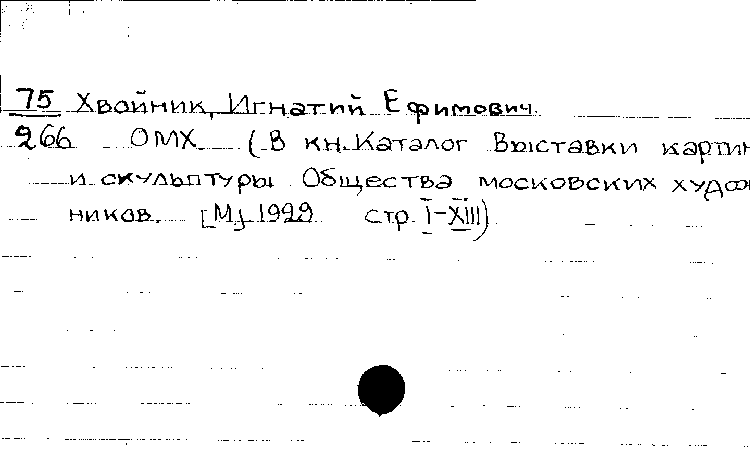 75 Хвойник, Игнатий Ефимович.
266 ОМХ (В кн. Каталог Выставки картин
и скульптуры Общества московских худож
ников. [М.] 1929 стр. I-XIII)